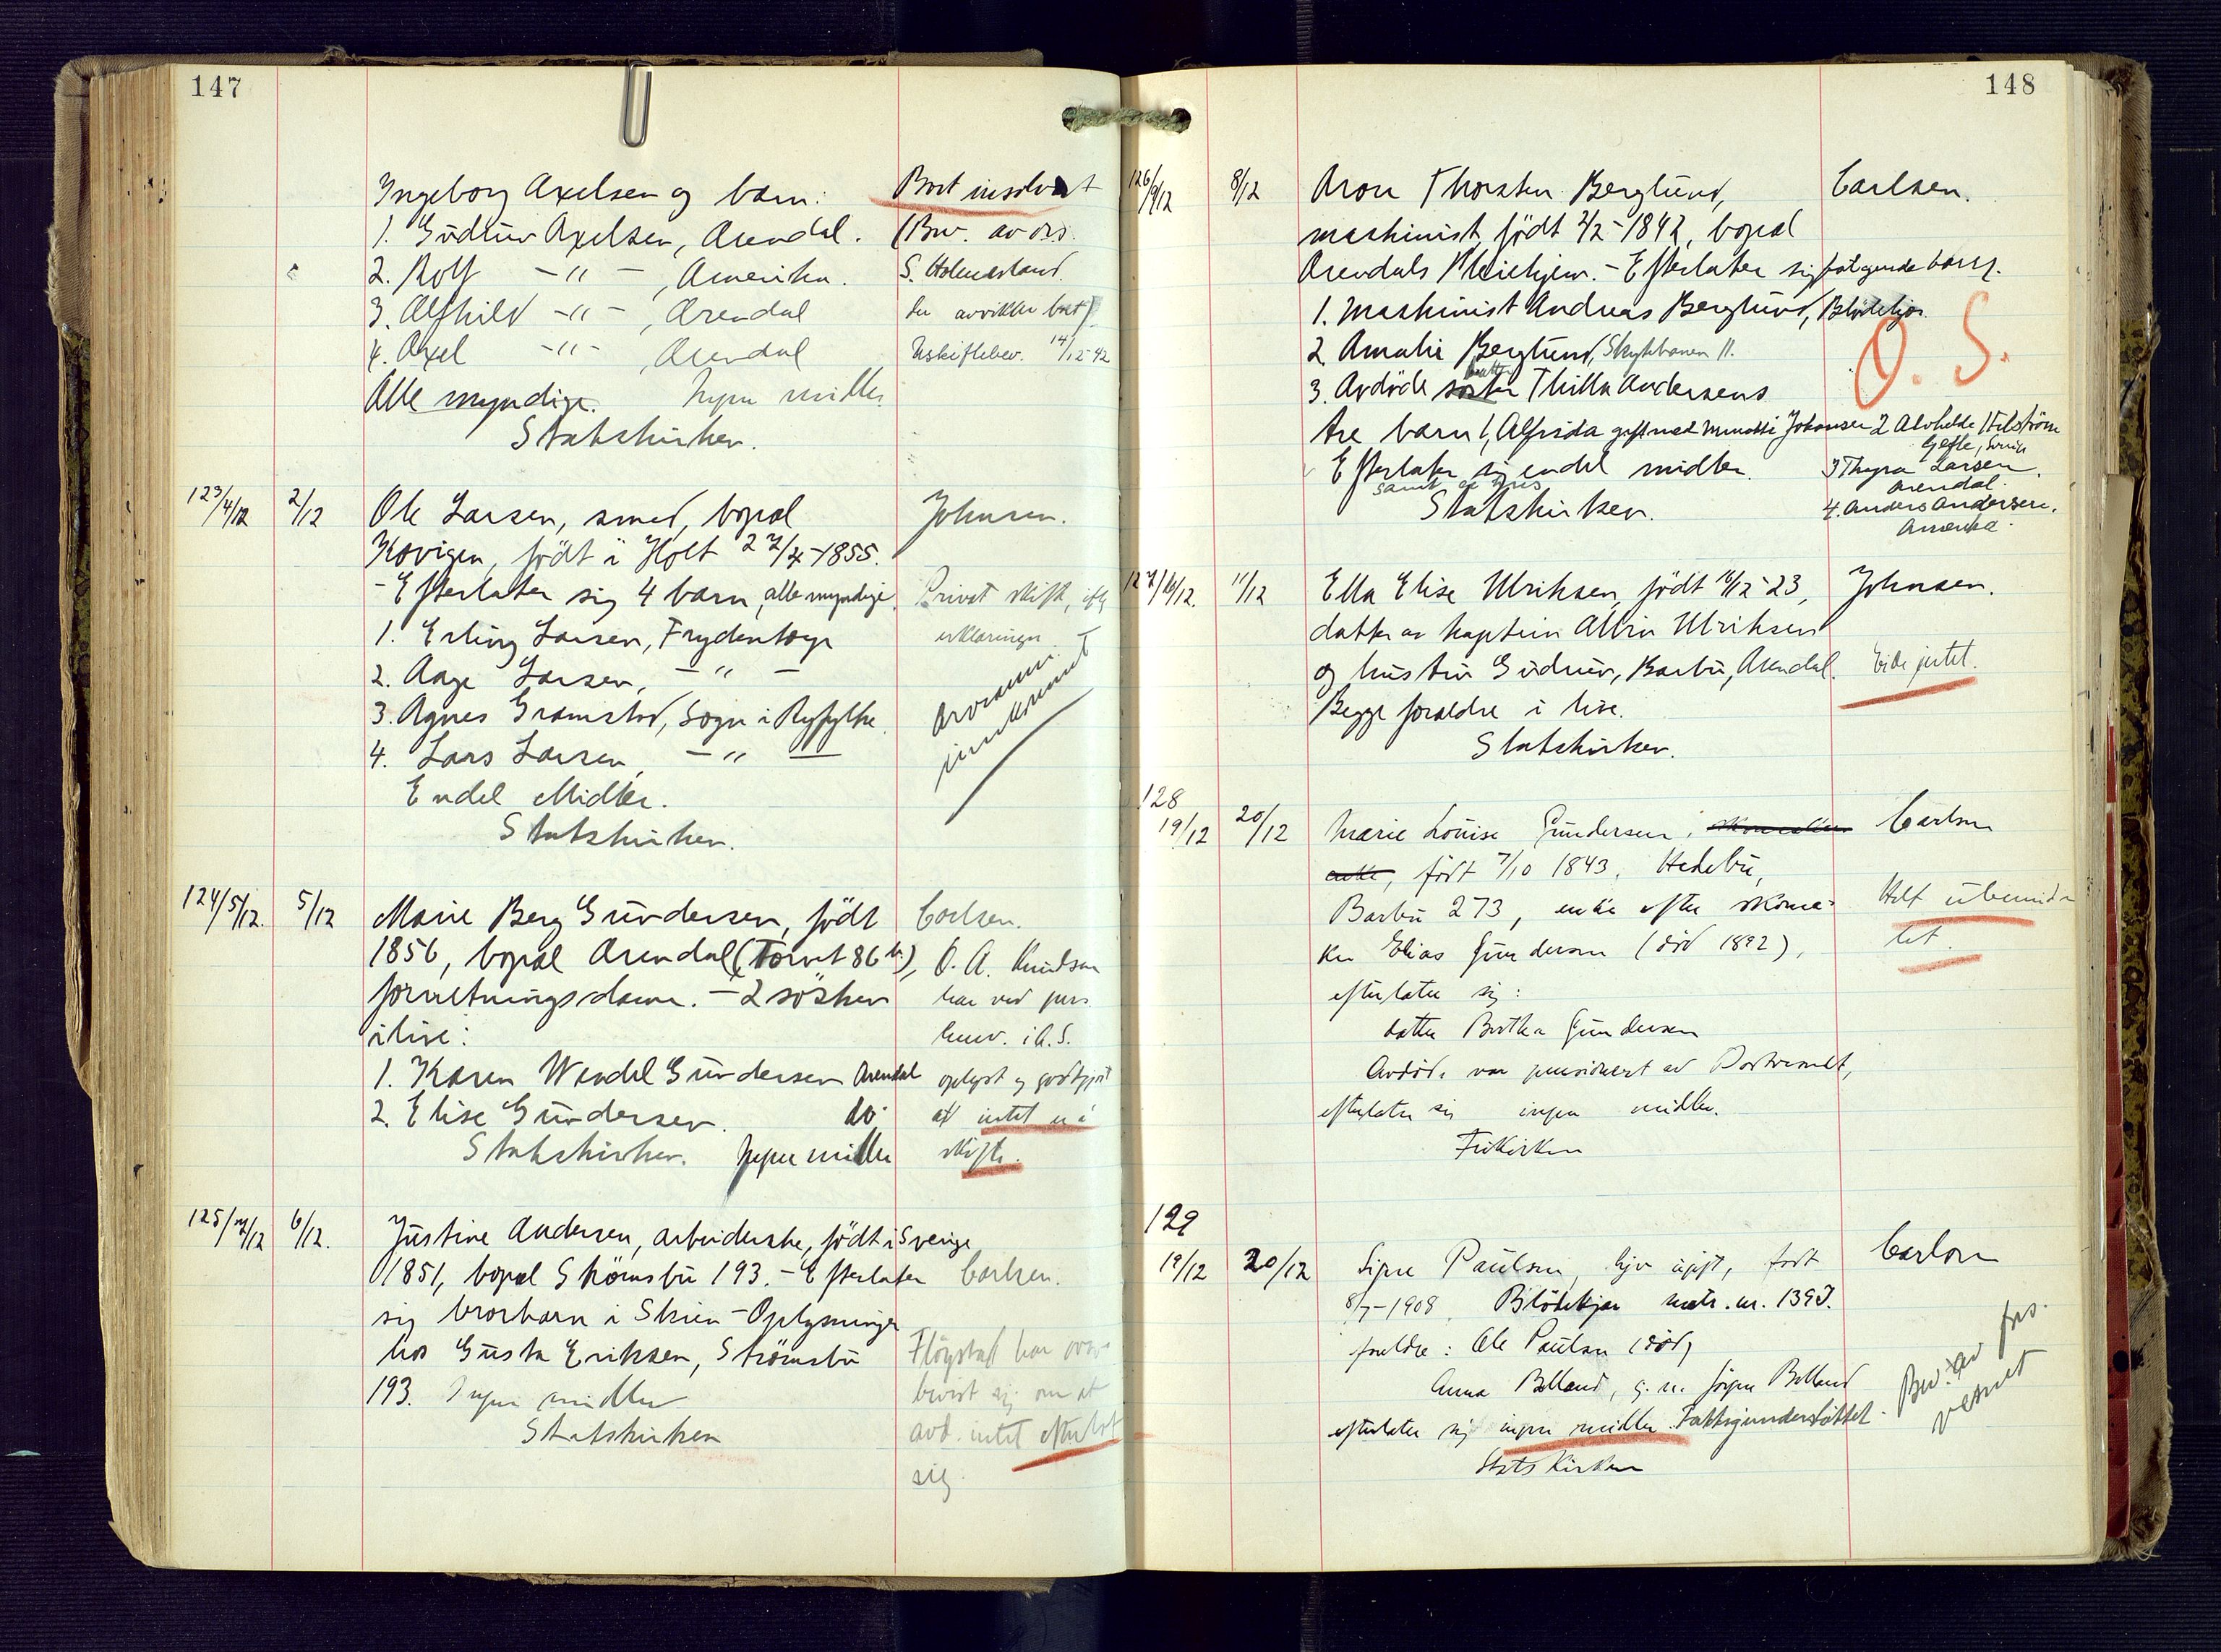 147
Ingeborg Axelsen og barn:
1. Gudrun Axelsen, Arendal.
2. Rolf -"-, Amerika.
3. Alfhild -"-, Arendal
4. Axel -"-, Arendal
Alle myndige. Ingen midler
Statskirken.
Boet insolvent
(Bev. av ors.
S. Holmesland
der avvikler boet)
Uskiftebev. 14/12-42
123/4/12 2/12
Ole Larsen, smed, bopæl
Kovigen, födt i Holt 27/4-1855.
- Efterlater sig 4 barn, alle myndige.
1. Erling Larsen, Frydentopp
2. Aage Larsen, -"-
3. Agnes Gramstad, Sogn i Ryfylke
4. Lars Larsen, -"-
Endel Midler.
Statskirken.
Johnsen.
Privat skifte, iflg
erklæringer.
124/5/12. 5/12
Marie Berg Gundersen, födt
1856, bopæl Arendal (Torvet 86 b),
forretningsdame. - 2 söstre
i live:
1. Karen Wendel Gundersen Arendal
2. Elise Gundersen. do.
Statskirken. Ingen midler
Carlsen.
O. A. Knudsen
har ved pers.
henv. i d. S.
oplyst og godtgjort
at intet er å
skifte.
125/7/12 6/12.
Justine Andersen, arbeiderske, födt i Sverige
1851, bopæl Strömsbu 193. - Efterlater
sig brorbarn i Skien - Oplysninger
hos Gusta Eriksen, Strömsbu
193. Ingen midler
Statskirken
Carlsen.
Flögstad har over-
bevist sig om at
avd. intet efterlot
sig.
148
126/9/12 8/12
Aron Thorsten Berglund,
maskinist, födt 2/2-1842, bopæl
Arendals Pleiehjem. - Efterlater sig følgende barn.
1. Maskinist Andreas Berglund, Blödekjær
2. Amalie Berglund, Skytebanen 11.
3. Avdöde datter Thilla Andersens
tre barn 1, Alfrida gift med Johansen 2 Alvhelde Helström
Gefle, Sverige
3 Thyra Larsen
Arendal.
4. Anders Andersen,
Amerika.
Efterlater sig endel midler.
Statskirken.
Carlsen.
O. S.
127/16/12. 11/12
Ella Elise Ulriksen, födt 16/12-23,
datter av kaptein Alvin Ulriksen
og hustru Gudrun, Barbu, Arendal.
Begge foreldre i live.
Statskirken.
Johnsen.
Eide intet.
128
19/12 20/12
Marie Louise Gundersen,
födt 7/10 1843. Hedebu,
Barbu 273, enke efter skoma-
ker Elias Gundersen (död 1892),
efterlater sig:
datter Bertha Gundersen
Avdöde var pensionert av Postvesenet,
efterlater sig ingen midler.
Frikirken
Carlsen
Helt ubemid-
let.
129
19/12 20/12
Signe Paulsen, ugift, født
8/7-1908. Blödekjær matr. nr. 139 I.
foreldre: Ole Paulsen (död)
Anna Bolland, g. m. Jörgen Bolland
efterlater sig ingen midler. Fattigunderstöttet.
Statskirken
Carlsen
Bev. av fors.
vesnet